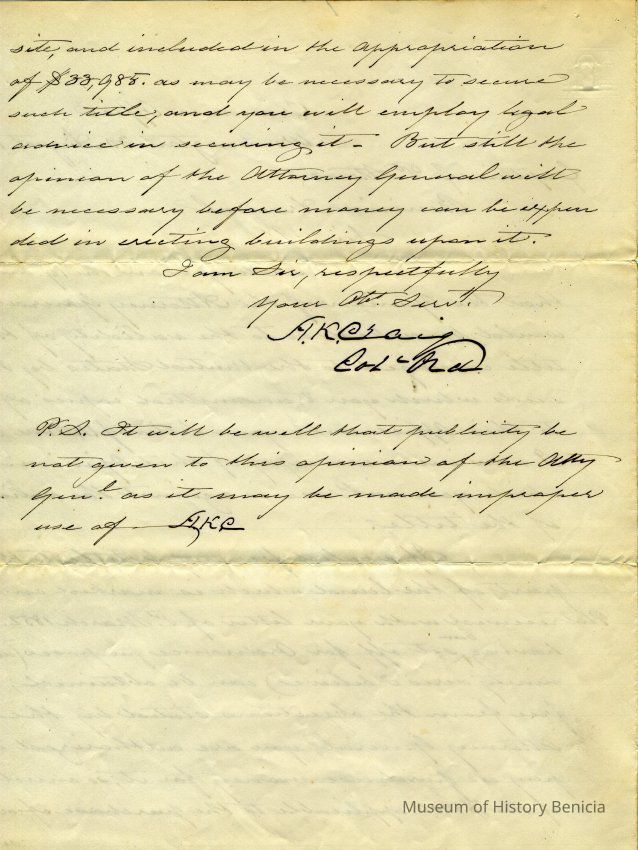 site, and included in the appropriation
of $33,985. as may be necessary to secure
such title, and you will employ legal
advice in securing it – But still the
opinion of the Attorney General will
be necessary before money can be expen
ded in erecting buildings upon it.
I am Sir, respectfully
Your Obt. Servt.
H.K. Craig
Col. Ord.
P.S. It will be well that publicity be
not given to this opinion of the Atty
Genl. as it may be made improper
use of – HKC
Museum of History Benicia